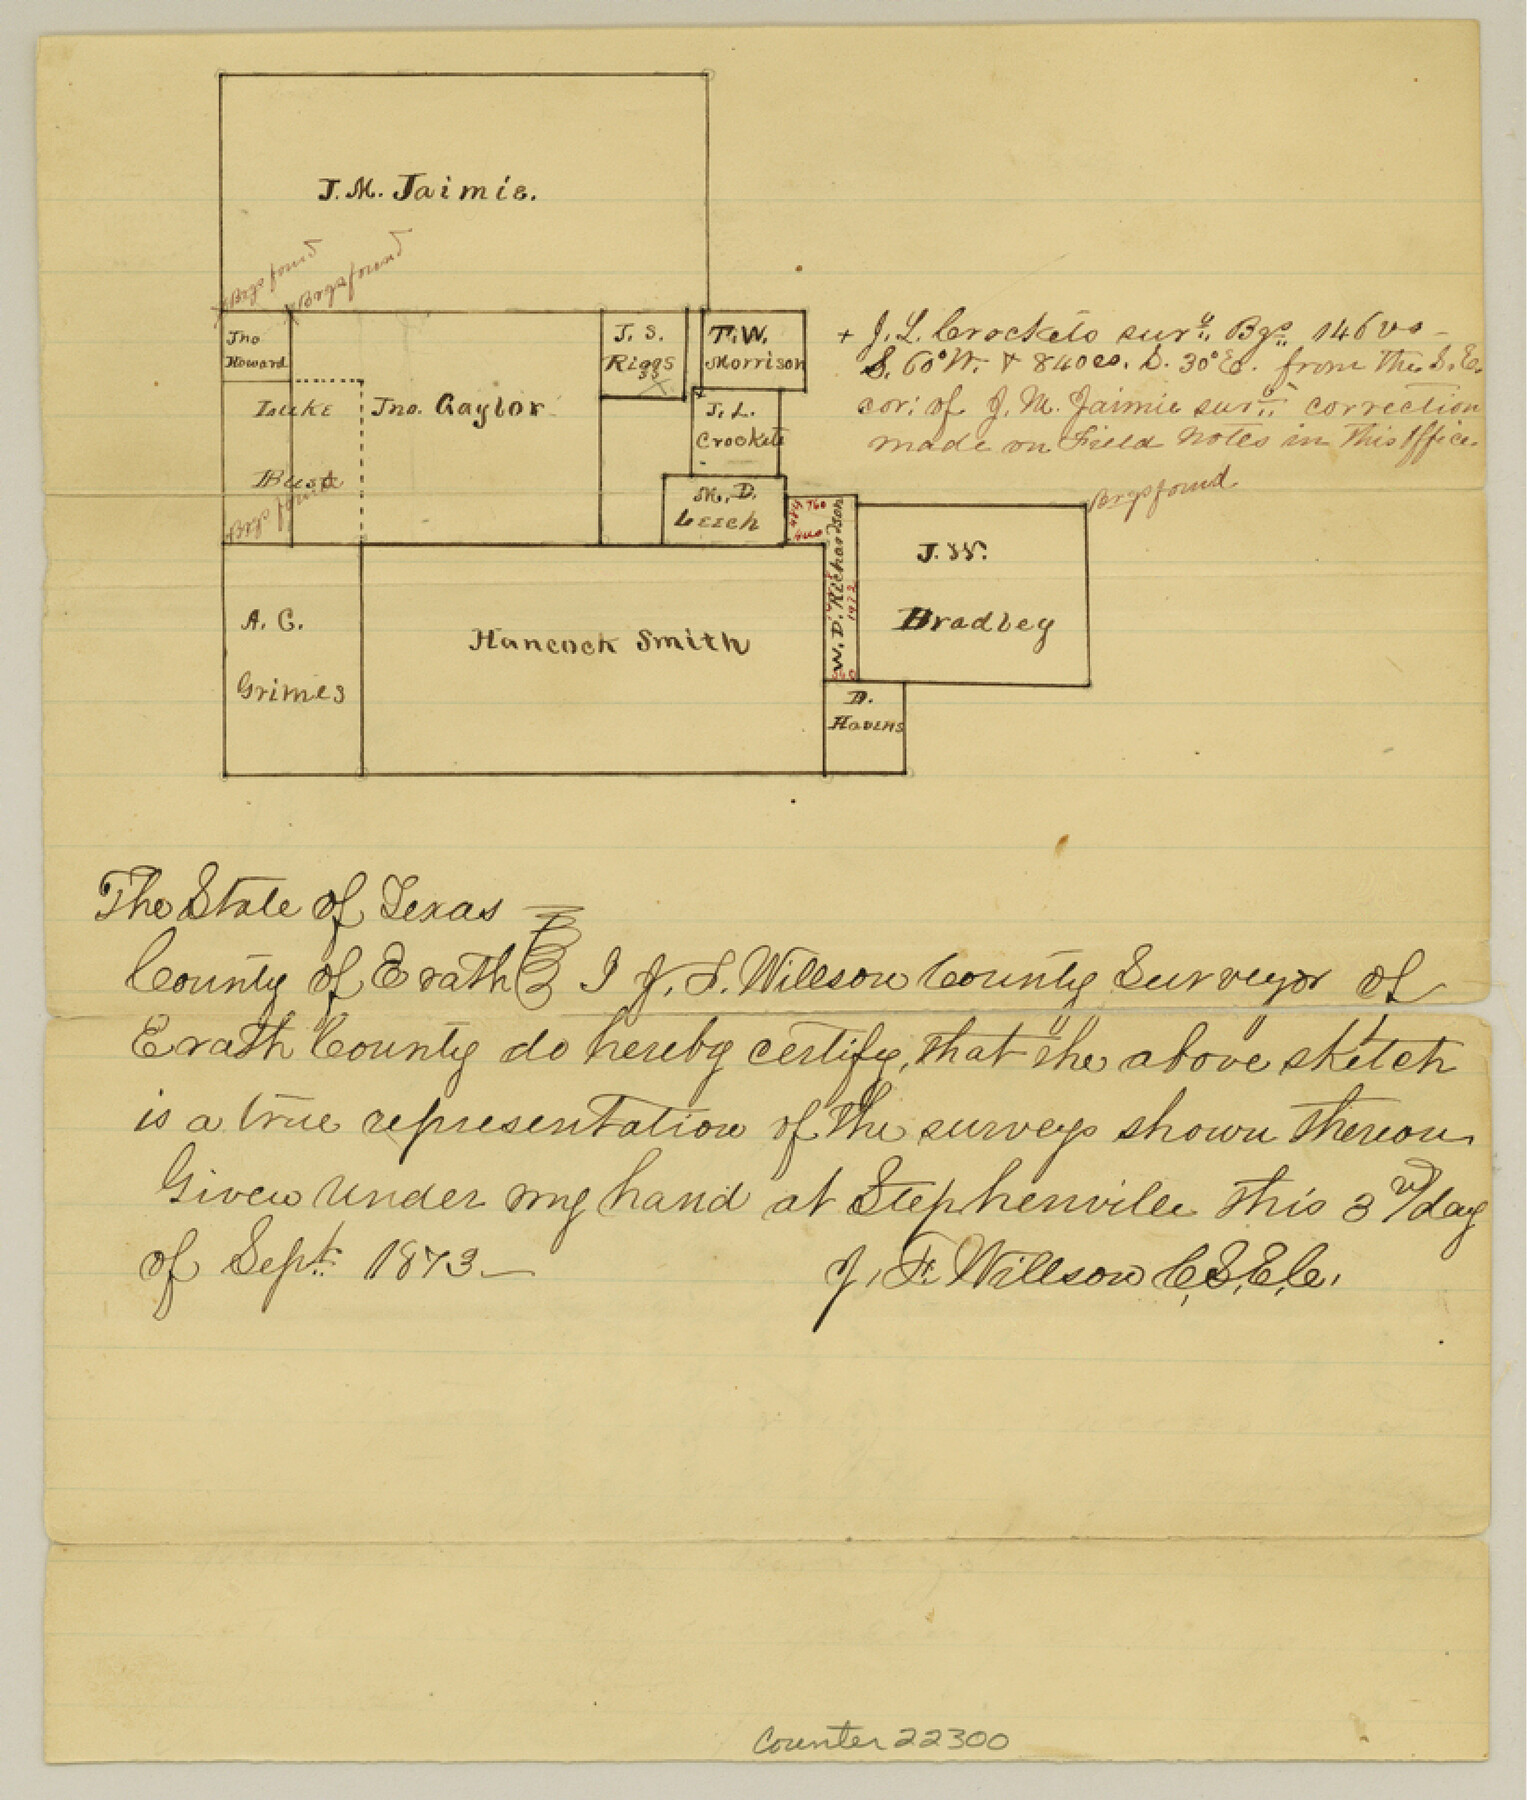 J. M. Jaimie.
Brgs found
Brgs found
Jno
Howard
J. S.
Riggs
T. W.
Morrison
+ J. L. Crocketts surv. Bgs. 146 vs
S. 60° W. & 840 vs. S. 30° E. from the S. E.
cor: of J. M. Jaimie surv. correction
made on Field notes in this office.
Luke
Bust
Jno. Gaylor
J. L.
Crockett
Brgs found
M. D.
Leech
760
400
W. D. Richardson
1922
Brgs found
J. W.
Bradley
A. C.
Grimes
Hancock Smith
D.
Havens
The State of Texas
County of Erath I J. F. Willson County Surveyor of
Erath County do hereby certify, that the above sketch
is a true representation of the surveys shown thereon.
Given under my hand at Stephenville this 3rd day
of Sept. 1873
J. F. Willson C.S.E.C.
Counter 22300